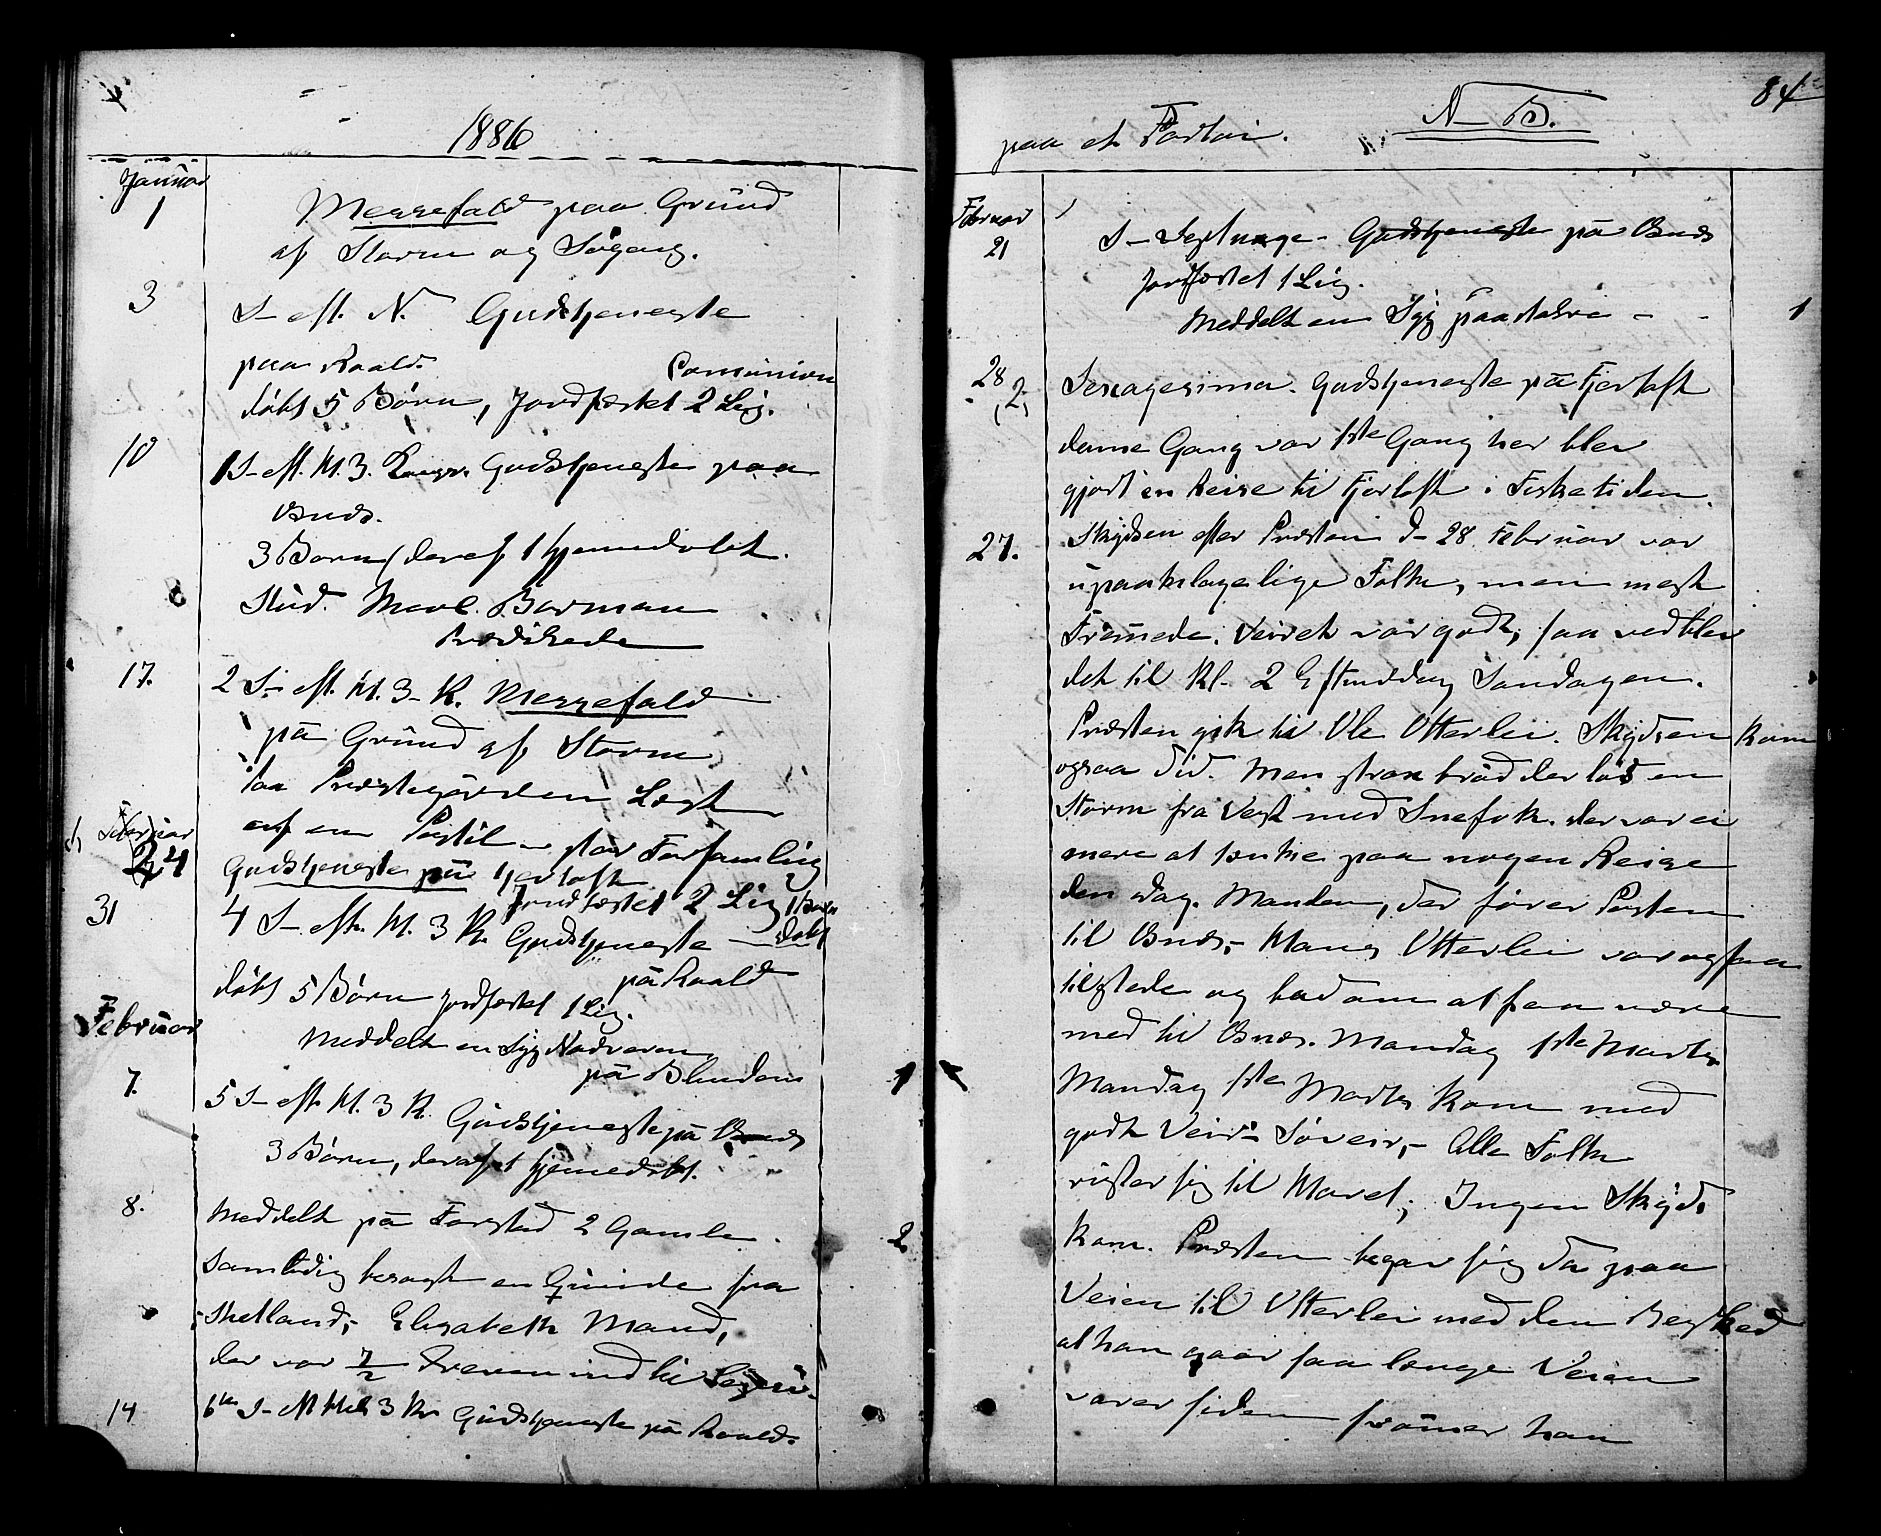 1886
Januar
1
Messefald paa Grund
af Storm og Søgang.
3
S– eft. N. Gudstjeneste
paa Roald. Comunion
døbt 5 Børn, Jordfæstet 2 Lig.
10
1 S– eft. H. 3. Gudstjeneste paa
Onæs.
3 Børn (deraf 1 hjemmedøbt.
Stud. Borman
Prædikede
17.
2 S– eft. H. 3– K. Messefald
på Grund af Storm
Paa Præstegården Læst
af en Postil – stor Forsamling
Februar
24
Gudstjeneste på Fjertoft
Jordfæstet 2 Lig 1 Barn
døbt
31
4 S– eft. H. 3 K. Gudstjeneste
på Roald
døbt 5 Børn jordfæstet 1 Lig.
Meddelt en Syg Nadveren
på Blindem
Februar
7.
5 S– eft H. 3 K. Gudstjeneste på Onæs
3 Børn, deraf 1 hjemmedøbt.
8.
Meddelt på Farstad 2 Gamle. 2
Samtidig besøgt en Qvinde fra
Shetland,– Elisabeth
der var 7/2 dreven ind til
14
6te S– H 3 K Gudstjeneste på Roald.
84
paa et Fartøi. N– B.
Februar
21
S– Septuage– Gudstjeneste på Onæs
Jordfæstet 1 Lig.
Meddelt en Syg paa – 1
28
2
Sexagesima. Gudstjeneste på Fjertoft
denne Gang var 1ste Gang her blev
gjort en Reise til Fjertoft i Fisketiden.
27.
Skydsen efter Præsten d– 28 Februar var
upaaklagelige Folk, men mest
Fremmede. Veiret var godt, saa vedblev
det til Kl– 2 Eftmiddag Søndagen.
Præsten gik til Ole Otterlei. Skydsen kom
ogsaa did. Men strax brød der løs en
Storm fra Vest med Snefok. der var ei
mere at tænke paa nogen Reise
den Dag. Manden, der fører Posten
til Onæs,– Hans Otterlei var ogsaa
tilstede og bad om at faa være
med til Onæs. Mandag 1ste Marts
Mandag 1ste Marts kom med
godt Veir– Søveir,– Alle Folk
ruster sig til Havet; Ingen Skyds
kom. Præsten begav sig da paa
Veien til Otterlei med den Besked
at han gaar saa længe Veien
varer siden svømmer han